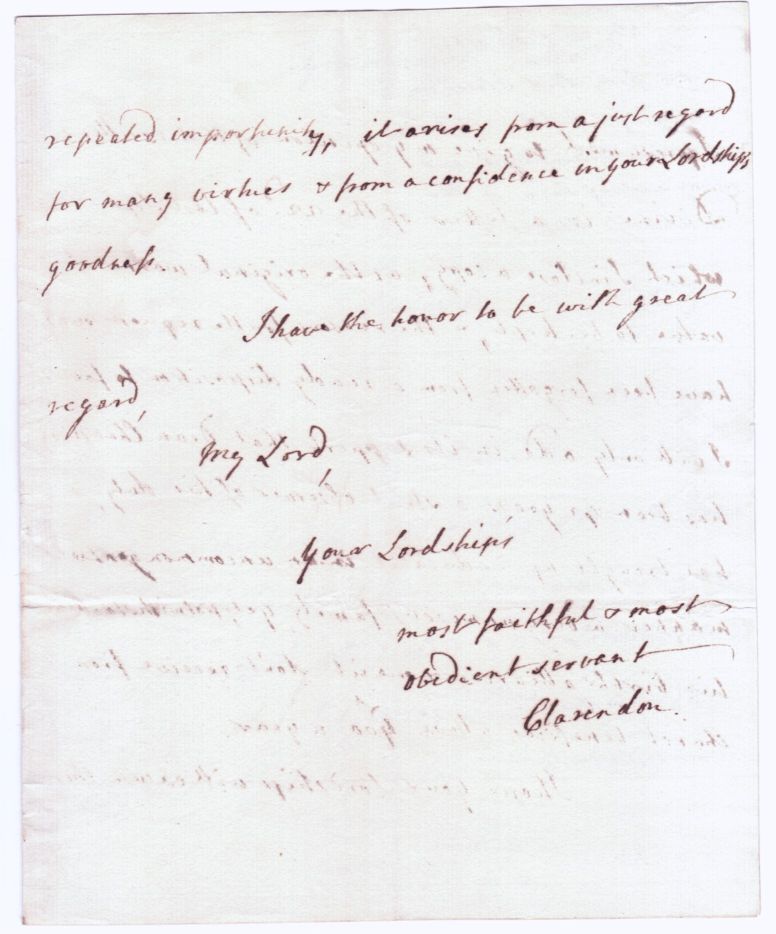 repeated importunity, it arises from a just regard
for many virtues & from a confidence in your Lordships
goodness
I have the honor to be with great
regard,
My Lord,
Your Lordships
most faithful & most
obedient servant
Clarendon.